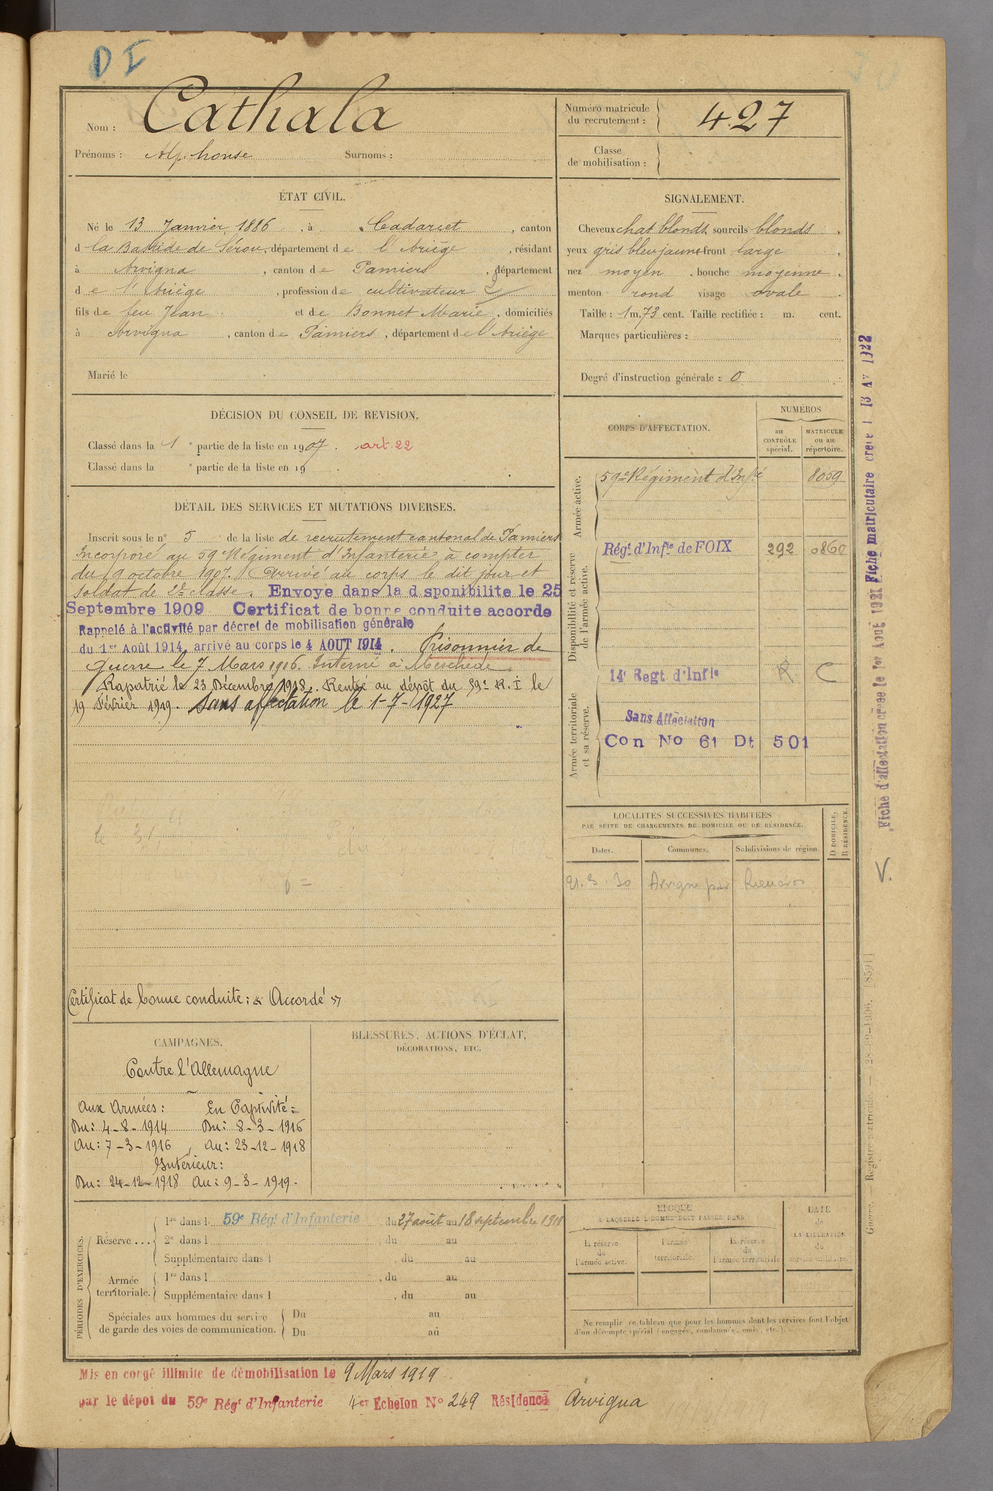 DI
Nom : Cathala
Prénoms : Alphonse Surnoms :
Numéro matricule du recrutement : 427
Classe de mobilisation :
ÉTAT CIVIL.
Né le 13 Janvier 1886, à Cadarcet, canton
d La Bastide de Sérou, département de l'Ariège, résidant
à Arvigna, canton de Pamiers, département
de l'Ariège, profession de cultivateur
fils de feu Jean et de Bonnet Marie, domiciliés
à Arvigna, canton de Pamiers, département de l'Ariège
Marié le
SIGNALEMENT.
Cheveux chat blonds, sourcils blonds,
yeux gris bleu jaune front large,
nez moyen, bouche moyenne,
menton rond visage ovale.
Taille : 1m,73 cent. Taille rectifiée : m. cent.
Marques particulières :
Degré d'instruction générale : 0
DÉCISION DU CONSEIL DE REVISION.
Classé dans la 1e partie de la liste en 1907. art. 22
Classé dans la e partie de la liste en 19
DÉTAIL DES SERVICES ET MUTATIONS DIVERSES.
Inscrit sous le n° 5 de la liste de recrutement cantonal de Pamiers
Incorporé au 59e Régiment d'Infanterie à compter
du 9 octobre 1907. Arrivé au corps le dit jour et
soldat de 2e classe. Envoye dans la disponibilite le 25
Septembre 1909 Certificat de bonne conduite accorde
Rappelé à l'activité par décret de mobilisation générale
du 1er Août 1914, arrivé au corps le 4 AOUT 1914. Prisonnier de
guerre le 7 Mars 1916. Interné à Meschede.
Rapatrié le 23 Décembre 1918. Rentré au dépôt du 59e R.I le
19 Février 1919. Sans affectation le 1-7-1927
Certificat de bonne conduite : Accordé
CORPS D'AFFECTATION.
NUMÉROS
au CONTRÔLE spécial.
MATRICULE ou au répertoire.
Armée active.
59e Régiment d'Infie 8059
Disponibilité et réserve de l'armée active.
Régt. d'Infie de FOIX 292 0860
Armée territoriale et sa réserve.
14e Regt d'Infie R C
Sans Affectation
Con No 61 Dt 501
LOCALITÉS SUCCESSIVES HABITÉES
PAR SUITE DE CHANGEMENTS DE DOMICILE OU DE RÉSIDENCE.
Dates. Communes. Subdivisions de région. D DOMICILE, R RÉSIDENCE.
21.3.30 Arvigna par
CAMPAGNES.
Contre l'Allemagne
Aux Armées : En Captivité :
Du : 4-8-1914 Du : 8-3-1916
Au : 7-3-1916, Au : 23-12-1918
Intérieur :
Du : 24-12-1918 Au : 9-3-1919.
BLESSURES, ACTIONS D'ÉCLAT,
DÉCORATIONS, ETC.
PÉRIODES D'EXERCICES.
Réserve ...
1re dans l 59e Régt. d'Infanterie du 27 août au 18 septembre 191
2e dans l , du au
Supplémentaire dans l , du au
Armée territoriale.
1re dans l , du au
Supplémentaire dans l , du au
Spéciales aux hommes du service
de garde des voies de communication.
Du au
Du au
ÉPOQUE
À LAQUELLE L'HOMME DOIT PASSER DANS
la réserve de l'armée active.
l'armée territoriale.
la réserve de l'armée territoriale
DATE
de
LA LIBÉRATION
du
service militaire.
Ne remplir ce tableau que pour les hommes dont les services font l'objet
d'un décompte spécial (engagés, condamnés, omis, etc.).
Mis en congé illimité de démobilisation le 9 Mars 1919
par le dépot du 59e Régt d'Infanterie 4er Echelon No 249 Résidence Arvigna
Fiche d'affectation créée le 1er Août 1921 Fiche matriculaire créée l 13 AV 1922
V.